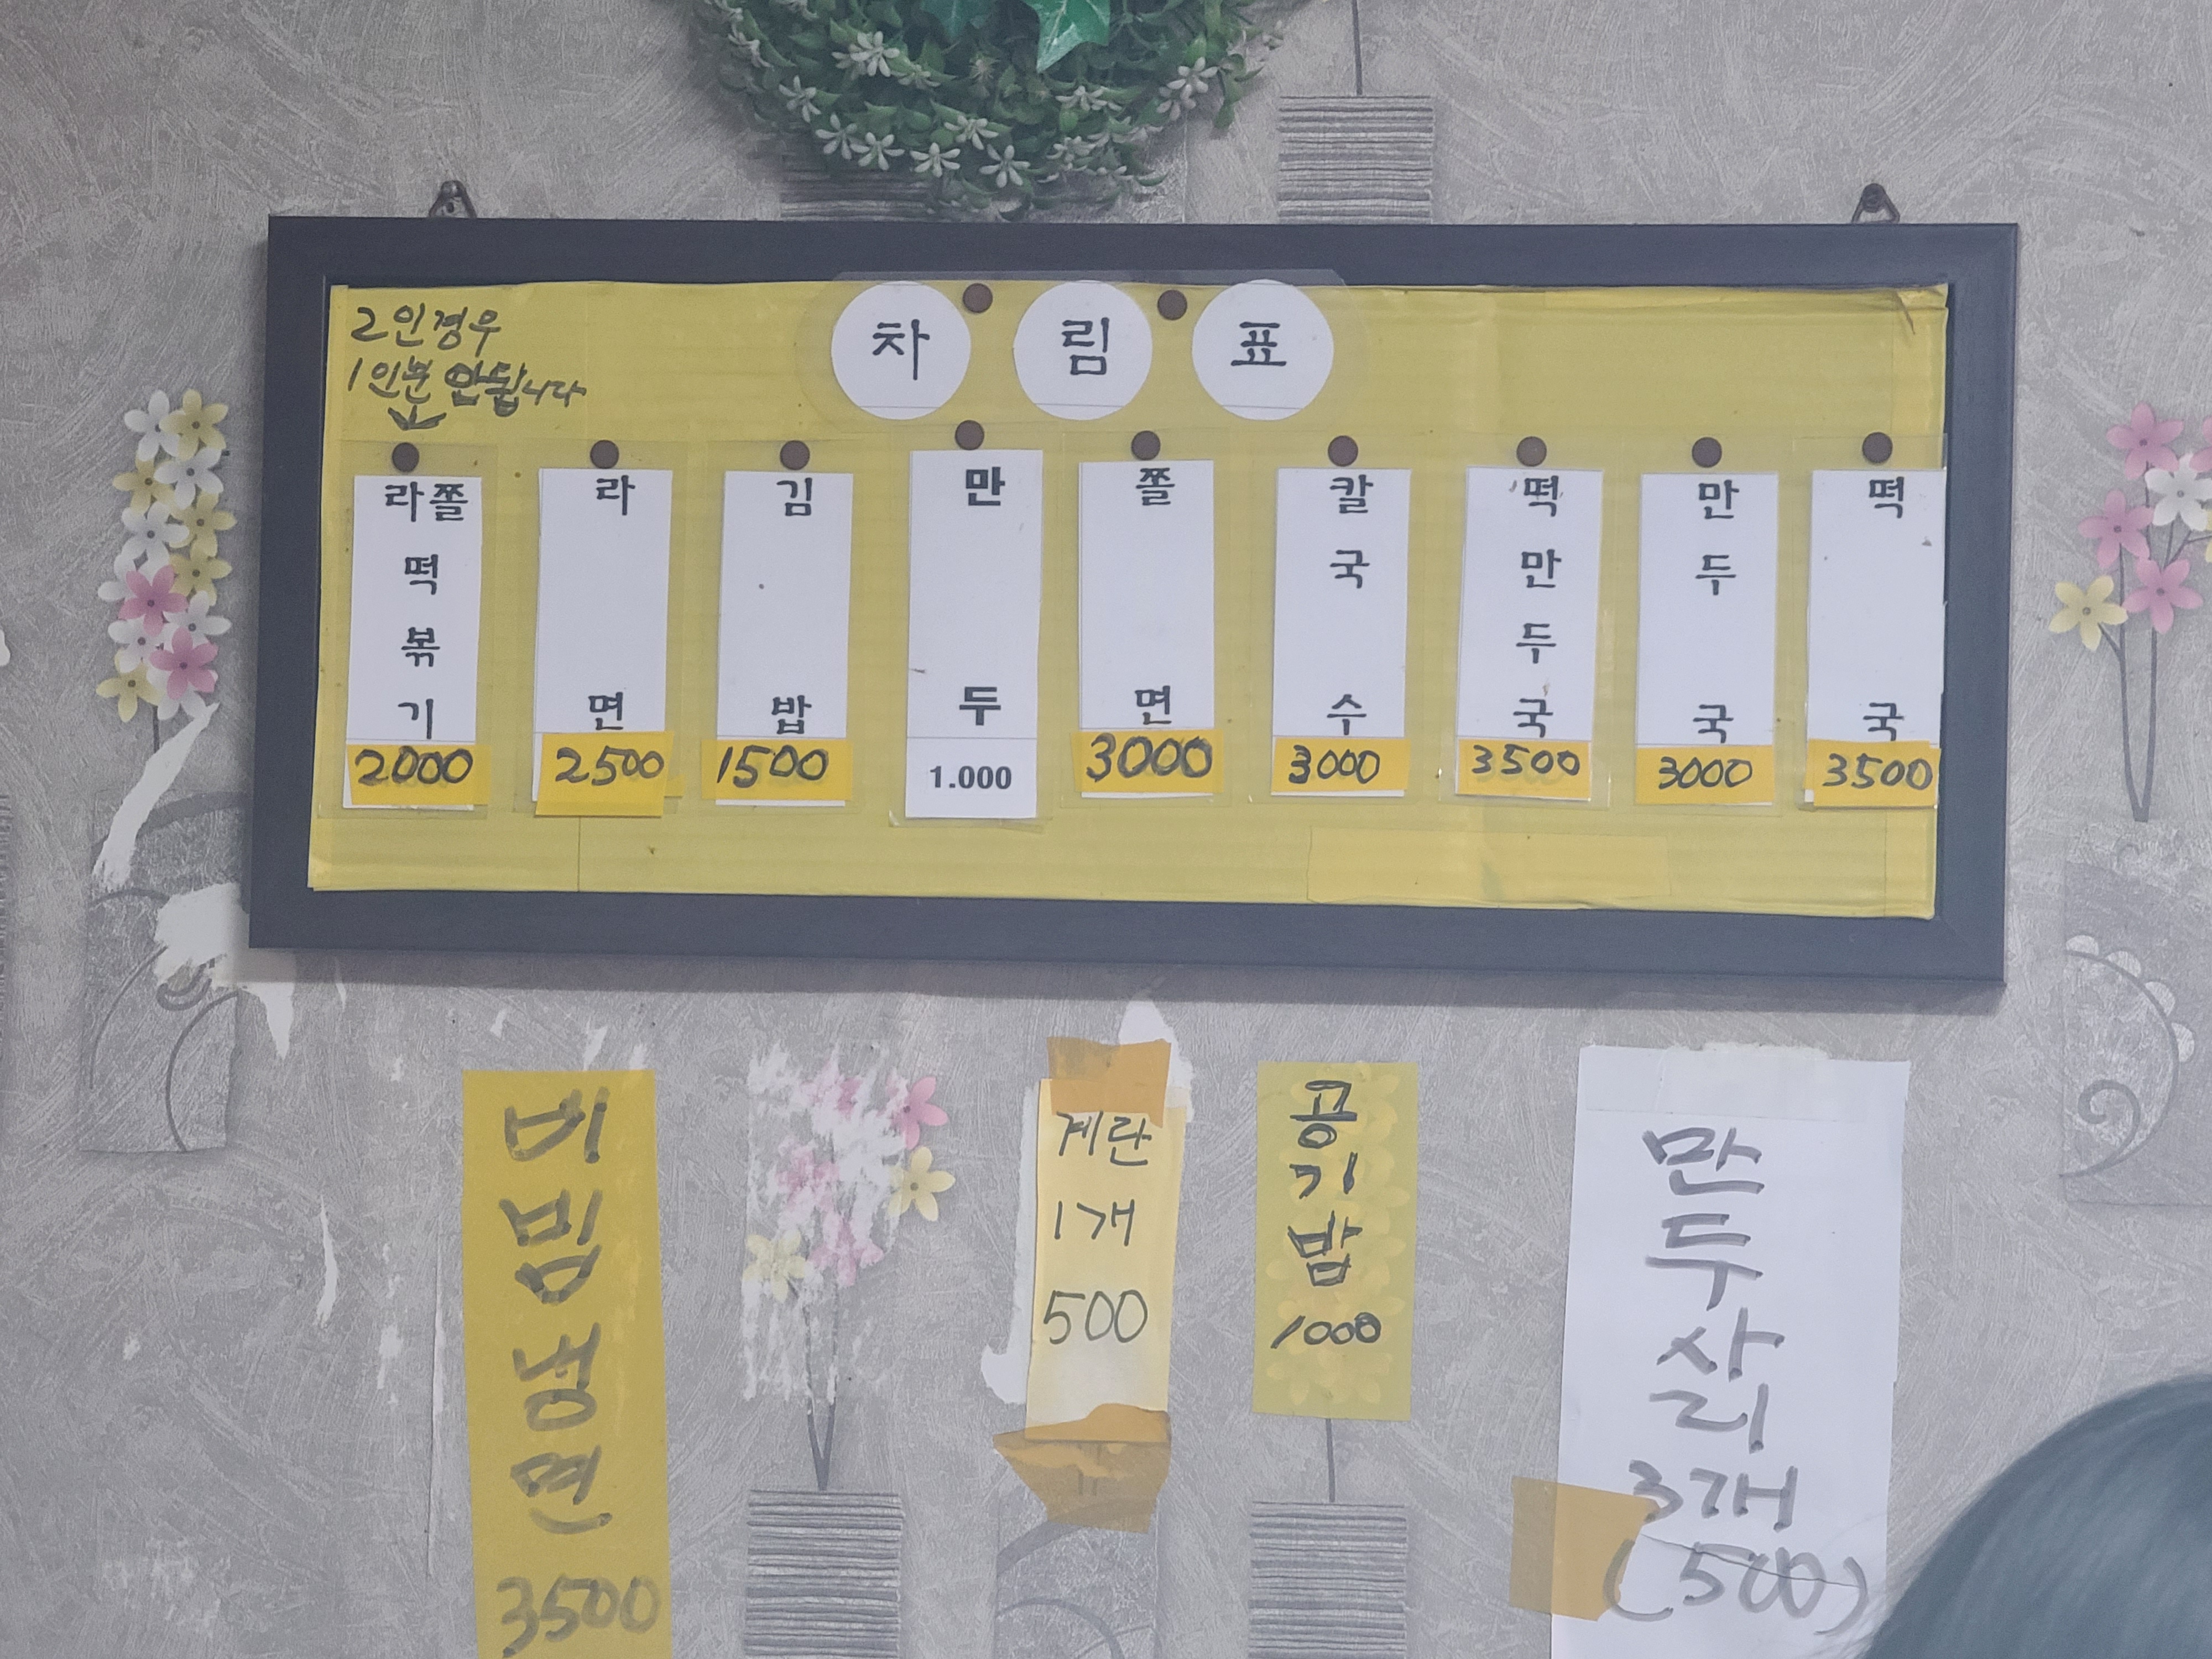 차림표
2인경우
1인분 안됩니다
라쫄떡볶기
2000
라면
2500
김밥
1500
만두
1.000
쫄면
3000
칼국수
3000
떡만두국
3500
만두국
3000
떡국
3500
비빔냉면
3500
계란
1개
500
공기밥
1000
만두사리
3개
(500)